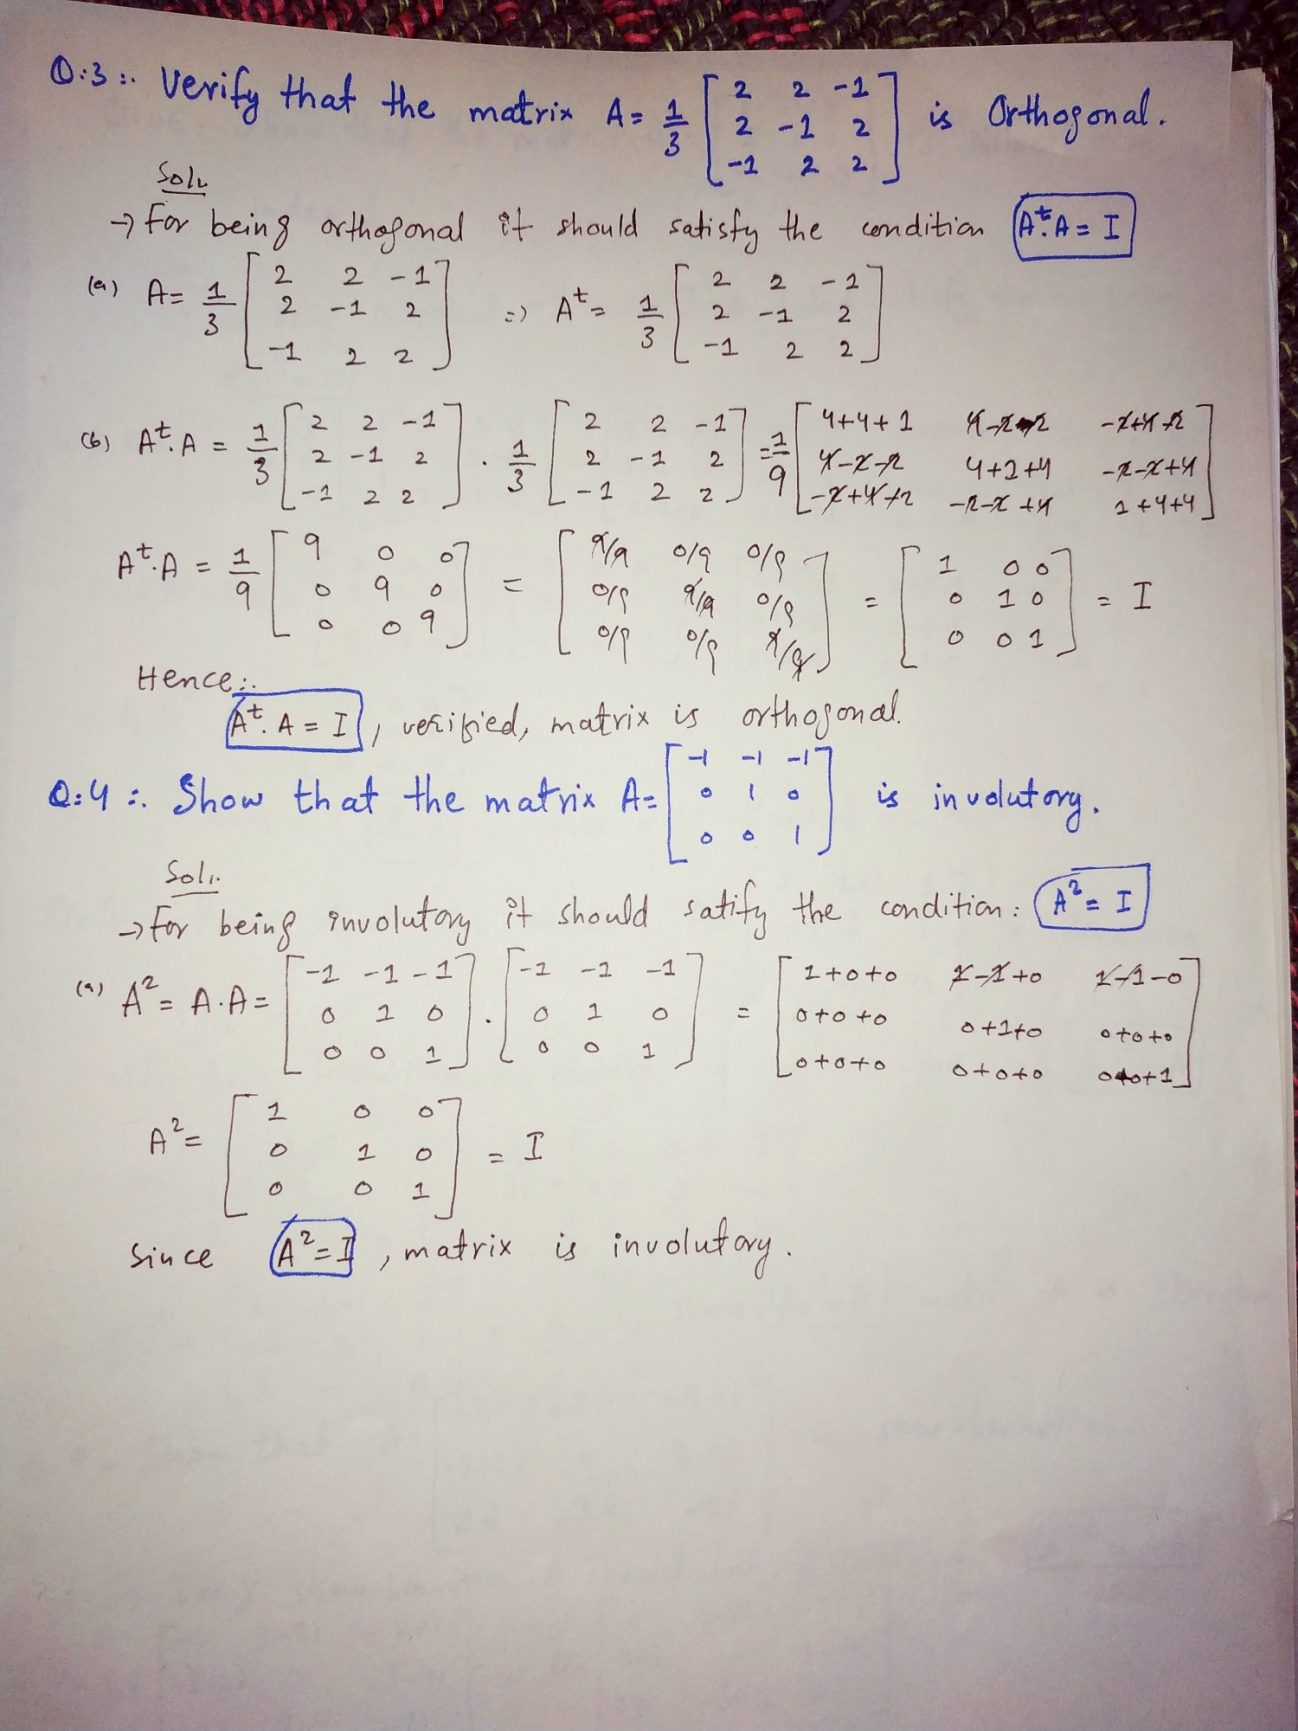 Q:3 :. Verify that the matrix A = 1/3 [2 2 -1; 2 -1 2; -1 2 2] is Orthogonal.
Sol:
→ For being orthogonal it should satisfy the condition A^t.A = I
(a) A = 1/3 [2 2 -1; 2 -1 2; -1 2 2] => A^t = 1/3 [2 2 -1; 2 -1 2; -1 2 2]
(b) A^t.A = 1/3 [2 2 -1; 2 -1 2; -1 2 2] . 1/3 [2 2 -1; 2 -1 2; -1 2 2] = 1/9 [4+4+1 4-2-2 -2+4-2; 4-2-2 4+1+4 -2-2+4; -2+4+2 -2-2+4 1+4+4]
A^t.A = 1/9 [9 0 0; 0 9 0; 0 0 9] = [9/9 0/9 0/9; 0/9 9/9 0/9; 0/9 0/9 9/9] = [1 0 0; 0 1 0; 0 0 1] = I
Hence:.
A^t. A = I , verified, matrix is orthogonal.
Q:4 :. Show that the matrix A = [-1 -1 -1; 0 1 0; 0 0 1] is involutory.
Sol:
→ For being involutory it should satify the condition: A² = I
(a) A² = A.A = [-1 -1 -1; 0 1 0; 0 0 1] . [-1 -1 -1; 0 1 0; 0 0 1] = [1+0+0 1-1+0 1-1-0; 0+0+0 0+1+0 0+0+0; 0+0+0 0+0+0 0+0+1]
A² = [1 0 0; 0 1 0; 0 0 1] = I
Since A² = I , matrix is involutory.